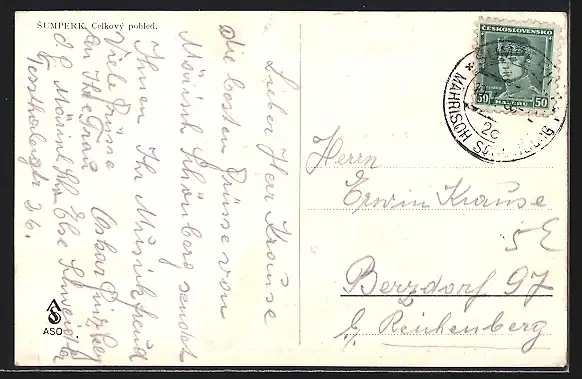 ŠUMPERK, Celkový pohled.
Lieber Herr Krause
die besten Grüsse von
Mährisch Schönberg sendet
Ihnen Ihr Musikfreund
Viele Grüsse Oskar
an Ihre Frau
d. O. Else
36.
ASO
ČESKOSLOVENSKO
50 50
MÄHRISCH SCHÖNBERG
Herrn
Erwin Krause
5E
Berzdorf 97
b/ Reichenberg